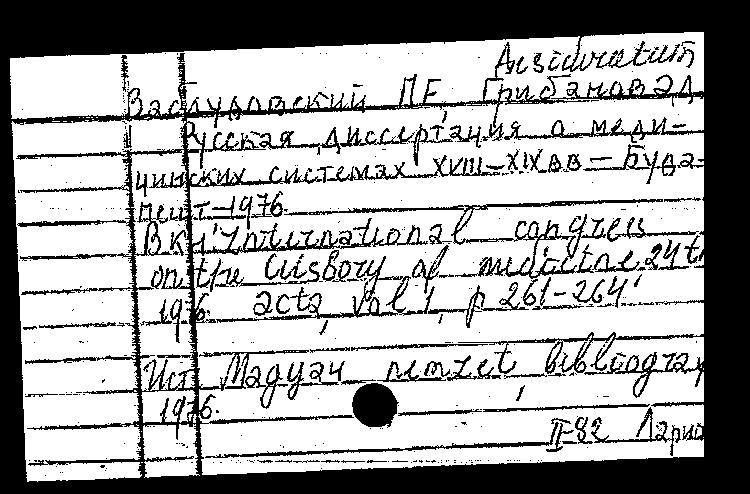 Desideratum
Заблудовский П.Е., Грибанов Э.Д.
Русская диссертация о меди-
цинских системах XVIII–XIX вв – Буда-
пешт – 1976
В кн: International congress
on the history of medicine 24th
1976. acta, vol 1, p 261-264
Ист. Magyar nemzet, bibliograf
1976.
II-82 Ларио